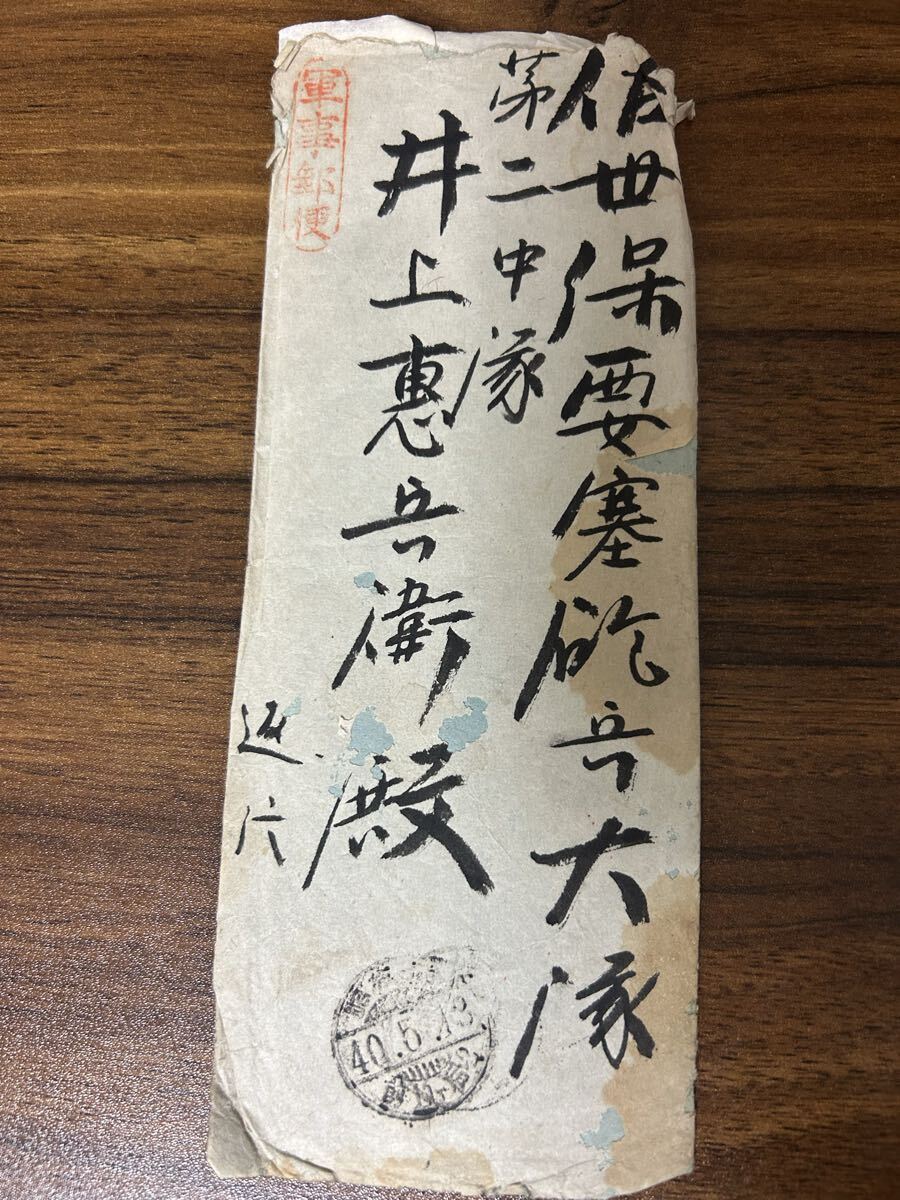 佐世保要塞砲兵大隊
第二中隊
井上惠兵衛殿
軍事郵便
返片
40.5.13